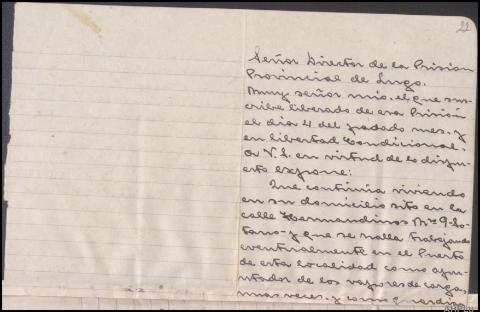 22
Señor Director de la Prision
Provincial de Lugo.
Muy señor mio. el que sus-
cribe liberado de esa Prisión
el dia 4 del pasado mes. y
en libertad Condicional:
a V. S. en virtud de lo dispu-
esto expone:
Que continua viviendo
en su domicilio sito en la
calle Hermandinos Nº 9-So-
tano-y que se halla trabajando
eventualmente en el Puerto
de esta localidad como apun-
tador de los vapores de carga,
unas veces. y como guardian